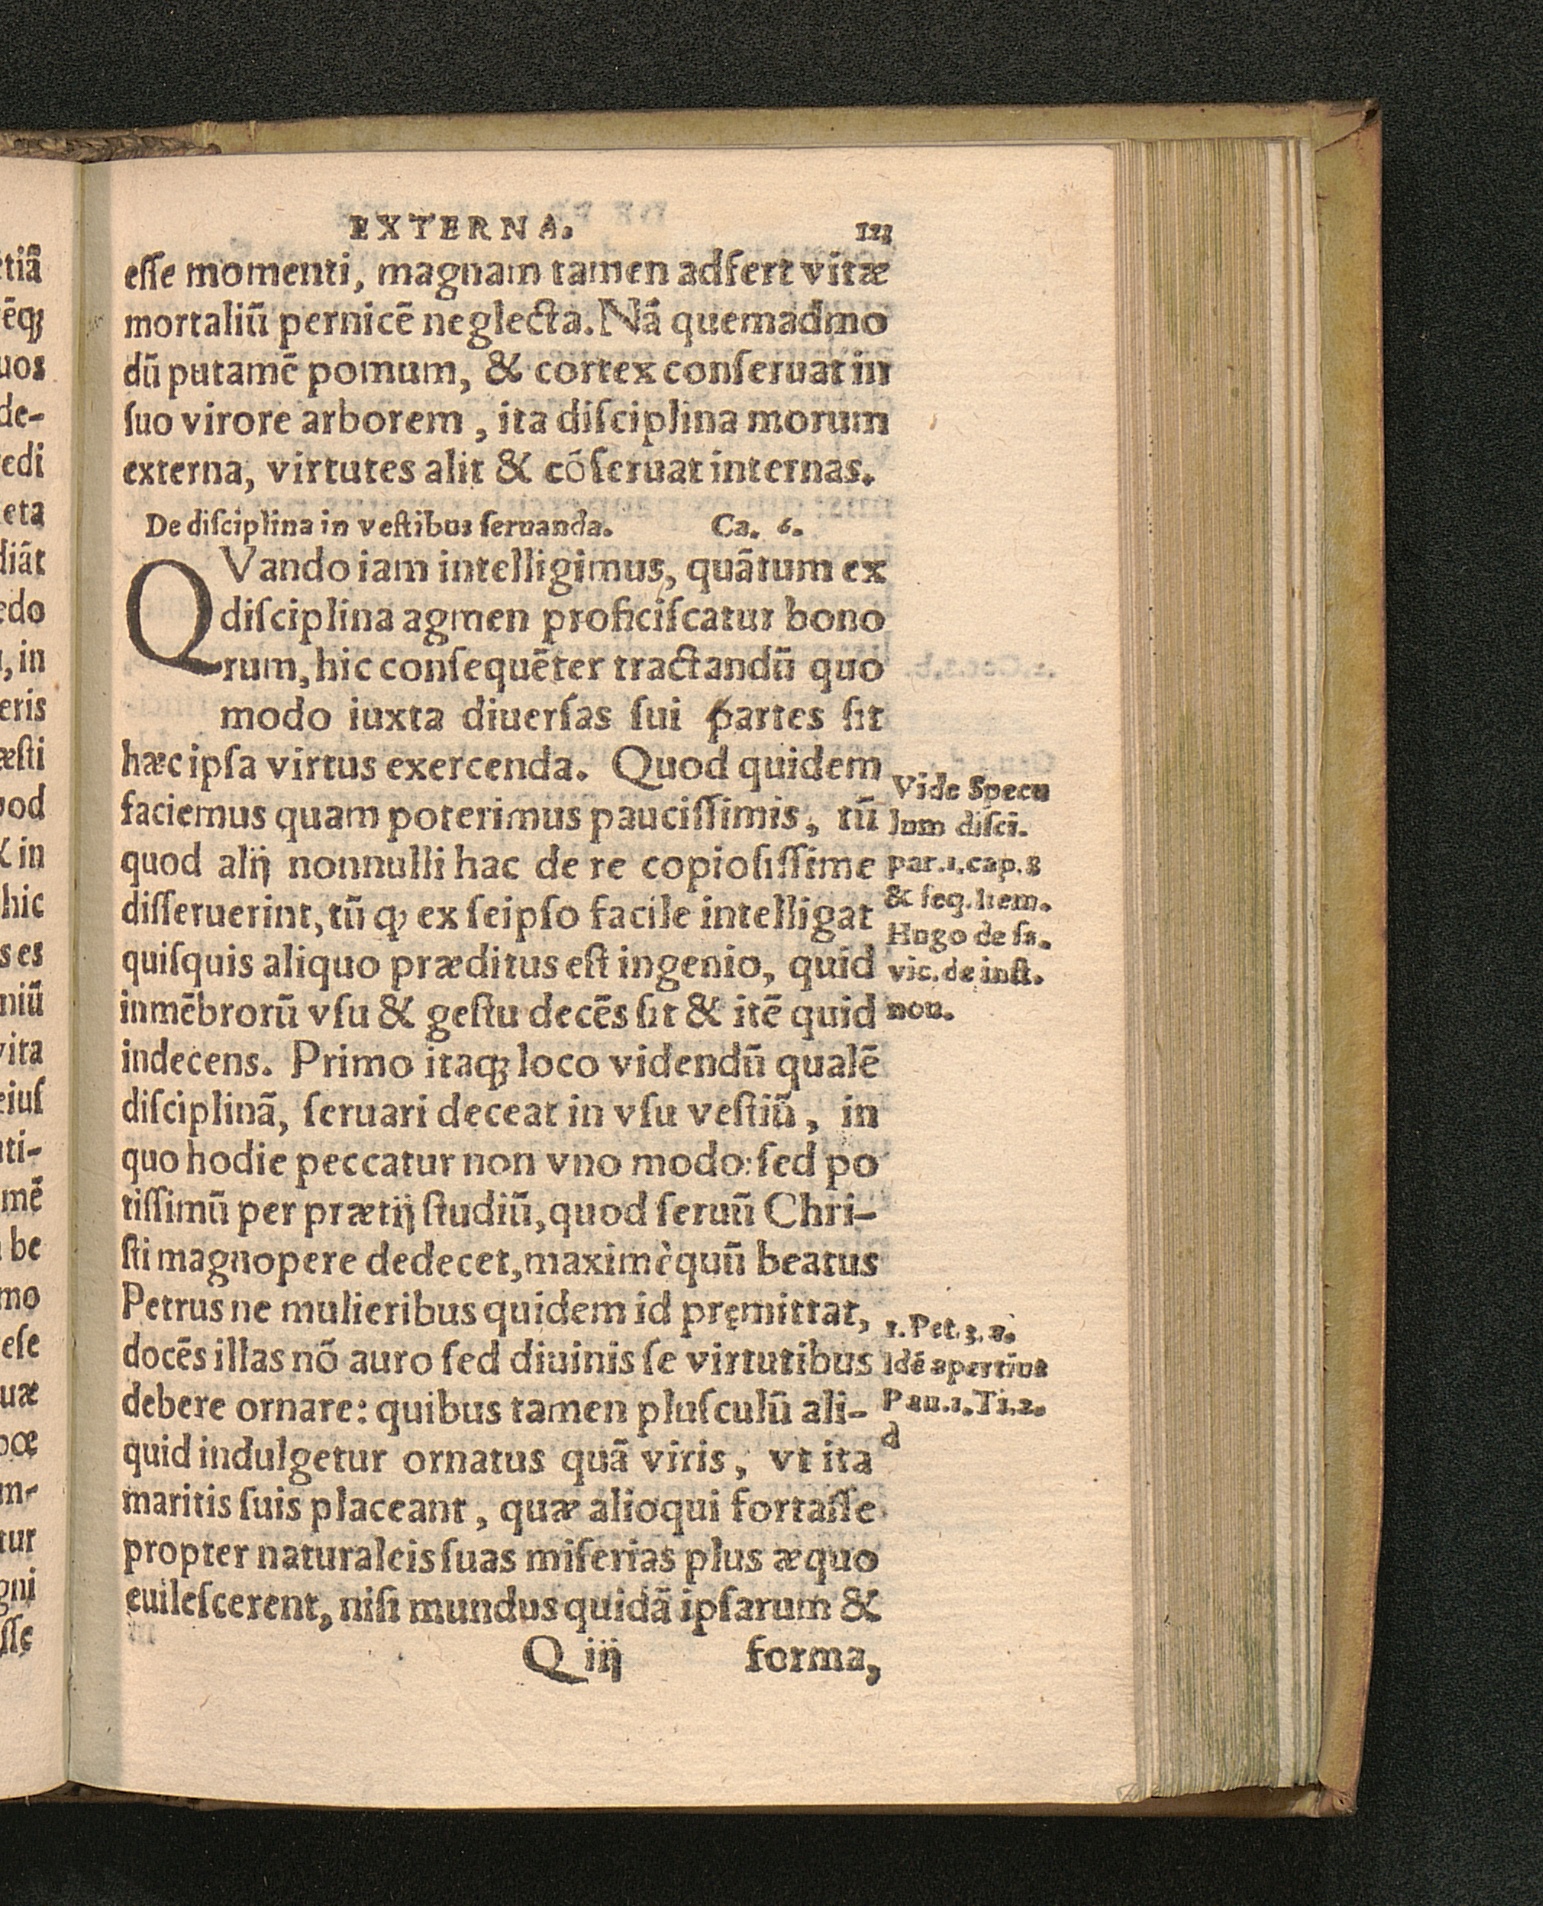 EXTERNA.
esse momenti, magnam tamen adfert vitæ
mortaliũ pernicẽ neglecta. Nã quemadmo
dũ putamẽ pomum, & cortex conſeruat in
ſuo virore arborem, ita diſciplina morum
externa, virtutes alit & cõſeruat internas.
De diſciplina in veſtibus ſeruanda. Ca. 6.
QVando iam intelligimus, quãtum ex
diſciplina agmen proficiſcatur bono
rum, hic conſequẽter tractandũ quo
modo iuxta diuerſas ſui ꝑartes ſit
hæc ipſa virtus exercenda. Quod quidem
faciemus quam poterimus pauciſſimis, tũ
quod alij nonnulli hac de re copioſiſſime
diſſeruerint, tũ ꝙ ex ſeipſo facile intelligat
quiſquis aliquo præditus eſt ingenio, quid
inmẽbrorũ vſu & geſtu decẽs ſit & itẽ quid
indecens. Primo itaqꝫ loco videndũ qualẽ
diſciplinã, ſeruari deceat in vſu veſtiũ, in
quo hodie peccatur non vno modo: ſed po
tiſſimũ per prætij ſtudiũ, quod ſeruũ Chri-
ſti magnopere dedecet, maximèquũ beatus
Petrus ne mulieribus quidem id pręmittat,
docẽs illas nõ auro ſed diuinis ſe virtutibus
debere ornare: quibus tamen pluſculũ ali-
quid indulgetur ornatus quã viris, vt ita
maritis ſuis placeant, quæ alioqui fortaſſe
propter naturaleis ſuas miſerias plus æquo
euileſcerent, niſi mundus quidã ipſarum &
Q iij forma,
Vide Specu
lum diſci.
par.1.cap.8
& ſeq. Item.
Hugo de ſa.
vic. de inſt.
nou.
1. Pet. 3. a.
Idẽ apertius
Pau.1.Ti.2.
d
tiã
ẽqꝫ
uos
de-
edi
eta
diãt
edo
, in
eris
æſti
od
in
hic
s es
niũ
vita
eiuſ
ti-
mẽ
be
mo
eſe
uæ
m-
tur
gni